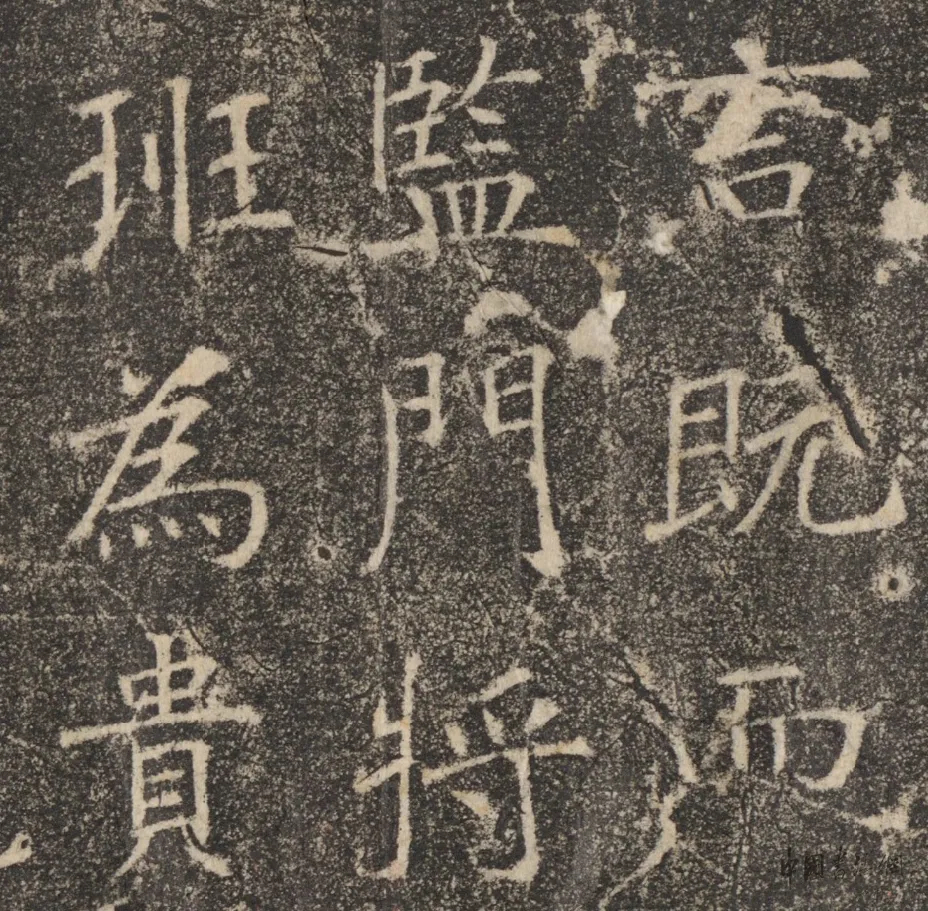 言既而
監門將
班為貴